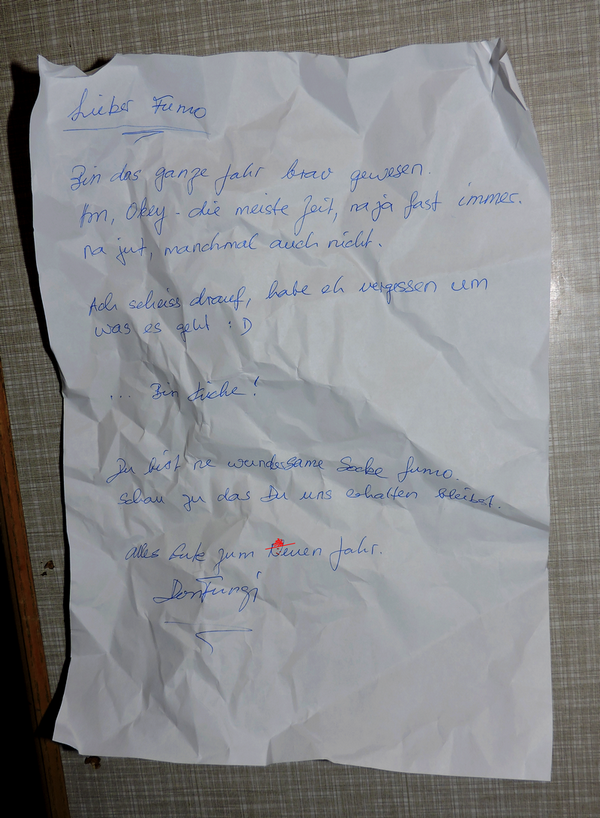 Lieber Fumo
Bin das ganze Jahr brav gewesen.
Hm, Okey - die meiste Zeit, na ja fast immer.
na jut, manchmal auch nicht.
Ach scheiss drauf, habe eh vergessen um
was es geht :D
... Bin Küche!
Du bist ne wundersame Socke fumo.
schau zu das Du uns erhalten bleibst.
Alles Gute zum neuen Jahr.
DonFungi